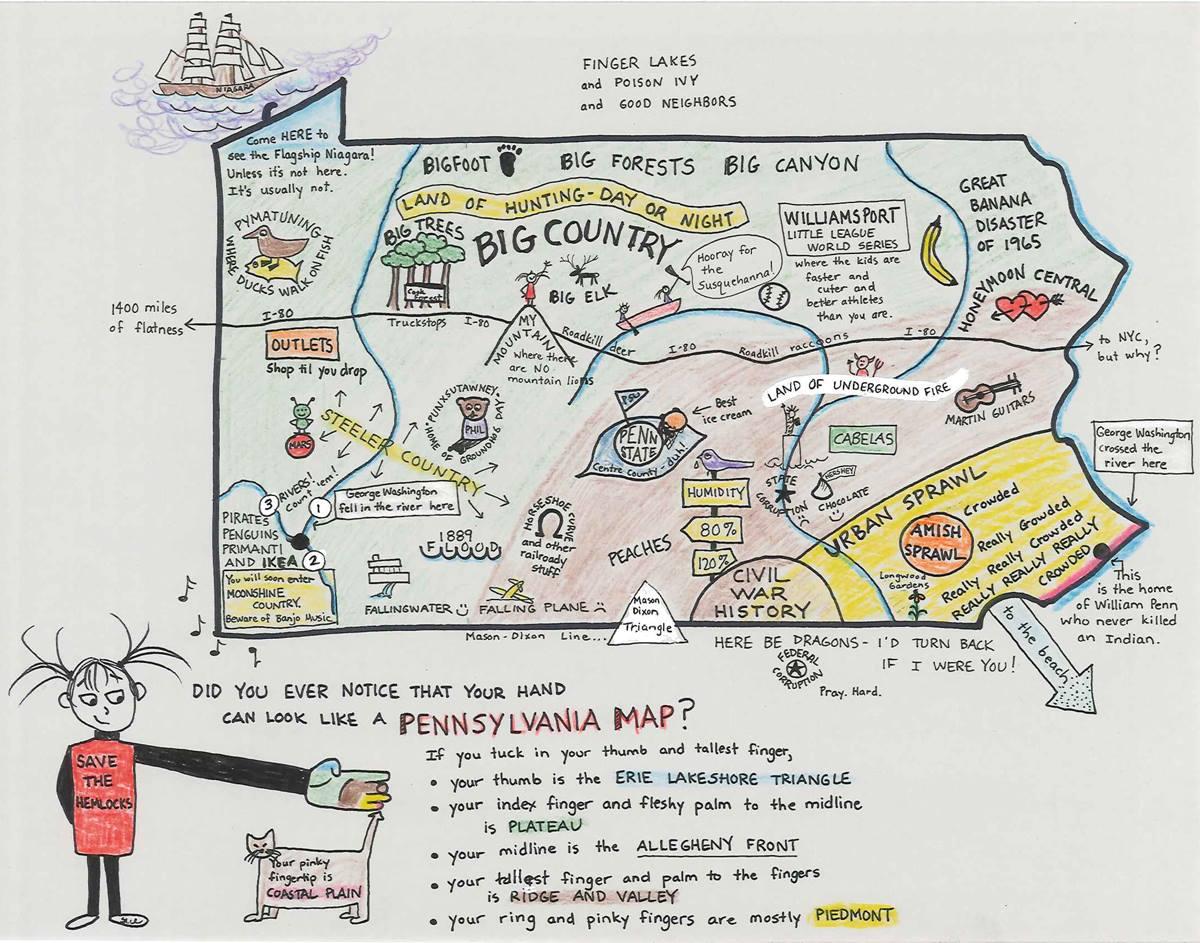 NIAGARA
FINGER LAKES
and POISON IVY
and GOOD NEIGHBORS
Come HERE to
see the Flagship Niagara!
Unless it's not here.
It's usually not.
BIGFOOT BIG FORESTS BIG CANYON
LAND OF HUNTING-DAY OR NIGHT
BIG TREES
Cook Forest
BIG COUNTRY
BIG ELK
Hooray for
the
Susquehanna!
WILLIAMSPORT
LITTLE LEAGUE
WORLD SERIES
where the kids are
faster and
cuter and
better athletes
than you are.
GREAT
BANANA
DISASTER
OF 1965
HONEYMOON CENTRAL
PYMATUNING
WHERE DUCKS WALK ON FISH
1400 miles
of flatness
I-80
Truckstops
I-80
Roadkill deer
I-80
Roadkill raccoons
I-80
to NYC,
but why?
MY
MOUNTAIN
where there
are NO
mountain lions
OUTLETS
Shop til you drop
MARS
STEELER COUNTRY
PUNXSUTAWNEY, PA
HOME OF GROUNDHOG DAY
PHIL
PSU
PENN
STATE
Centre County - duh!
Best
ice cream
LAND OF UNDERGROUND FIRE
MARTIN GUITARS
CABELAS
STATE
CORRUPTION
HERSHEY
CHOCOLATE
George Washington
crossed the
river here
3
RIVERS!
Count 'em!
1
2
George Washington
fell in the river here
PIRATES
PENGUINS
PRIMANTI
AND IKEA
You will soon enter
MOONSHINE
COUNTRY.
Beware of Banjo Music.
1889
FLOOD
FALLINGWATER
HORSESHOE CURVE
and other
railroady
stuff
FALLING PLANE
PEACHES
HUMIDITY
80%
120%
CIVIL
WAR
HISTORY
URBAN SPRAWL
AMISH
SPRAWL
Crowded
Really Crowded
Really Really Crowded
REALLY REALLY REALLY
CROWDED
Longwood
Gardens
This
is the home
of William Penn
who never killed
an Indian.
to the beach
Mason-Dixon Line...
Mason
Dixon
Triangle
HERE BE DRAGONS - I'D TURN BACK
IF I WERE YOU!
FEDERAL
CORRUPTION
Pray. Hard.
DID YOU EVER NOTICE THAT YOUR HAND
CAN LOOK LIKE A PENNSYLVANIA MAP?
If you tuck in your thumb and tallest finger,
• your thumb is the ERIE LAKESHORE TRIANGLE
• your index finger and fleshy palm to the midline
is PLATEAU
• your midline is the ALLEGHENY FRONT
• your tallest finger and palm to the fingers
is RIDGE AND VALLEY
• your ring and pinky fingers are mostly PIEDMONT
SAVE
THE
HEMLOCKS
Your pinky
fingertip is
COASTAL PLAIN